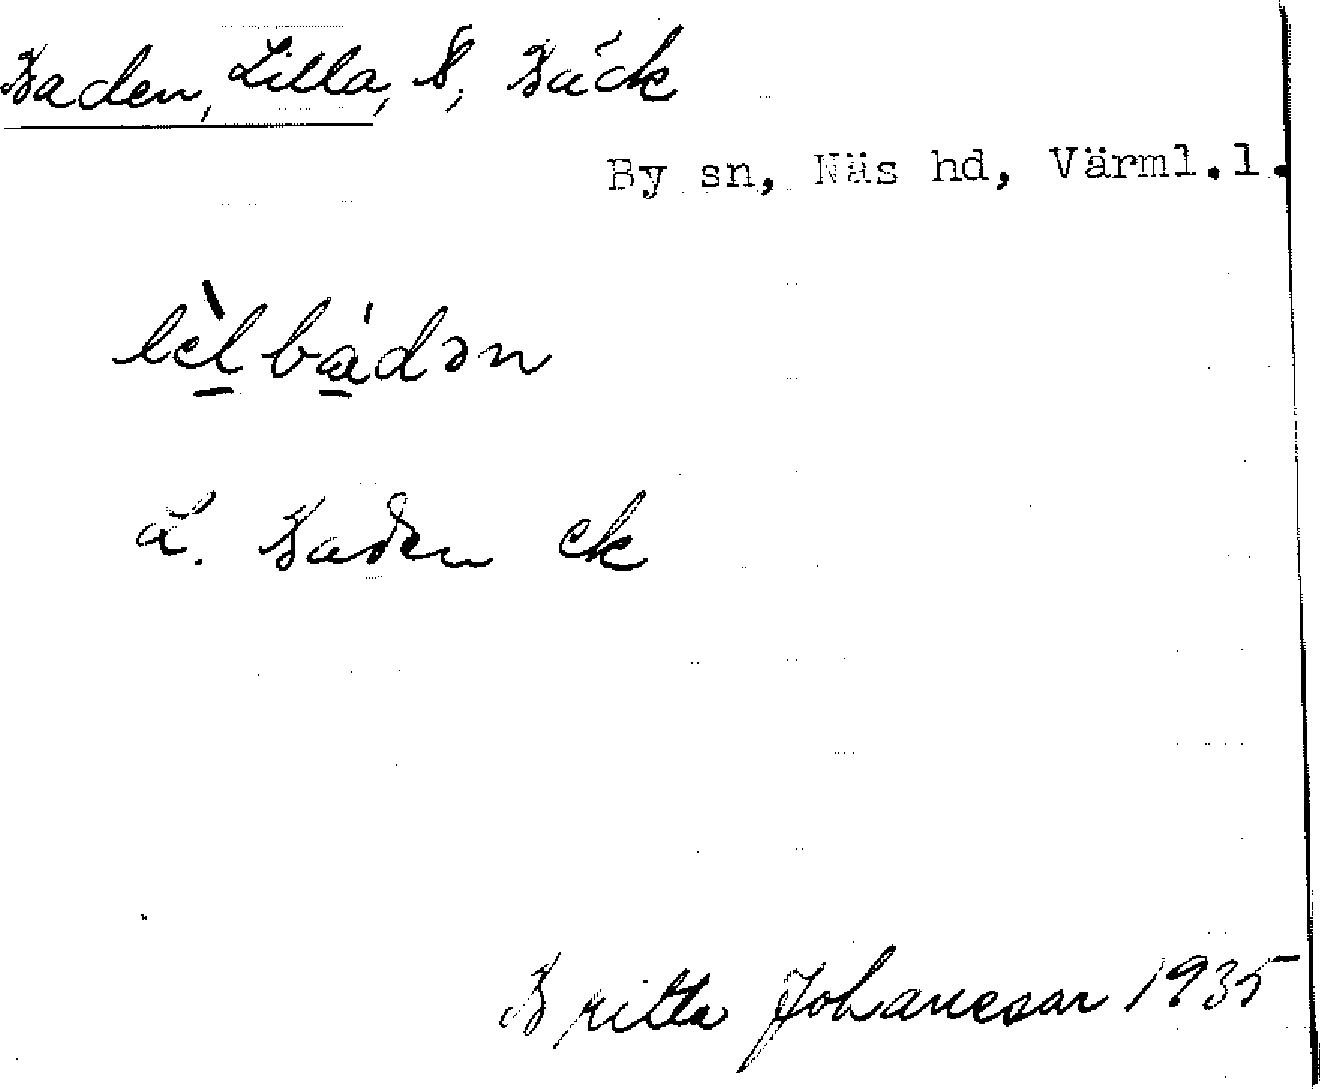 Baden, Lilla, S, Bäck
By sn, Näs hd, Värml.l.
lèlbádən
L. Baden ek
Britta Johansson 1935